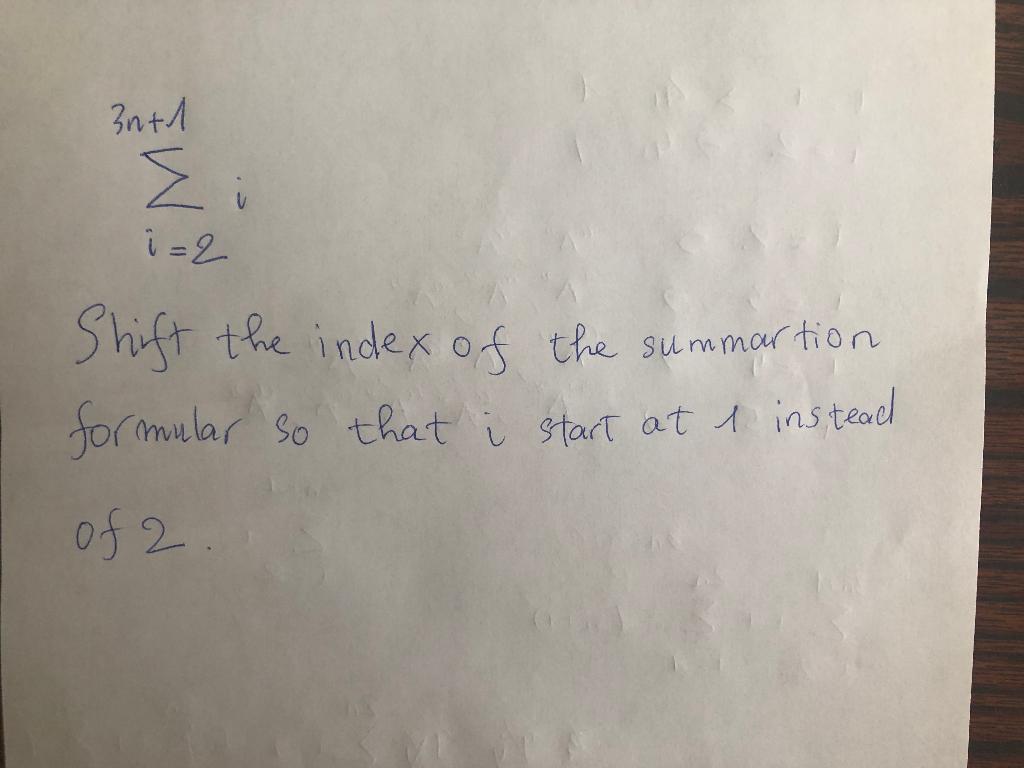 3n+1
Σ i
i=2
Shift the index of the summartion
formular so that i start at 1 instead
of 2.